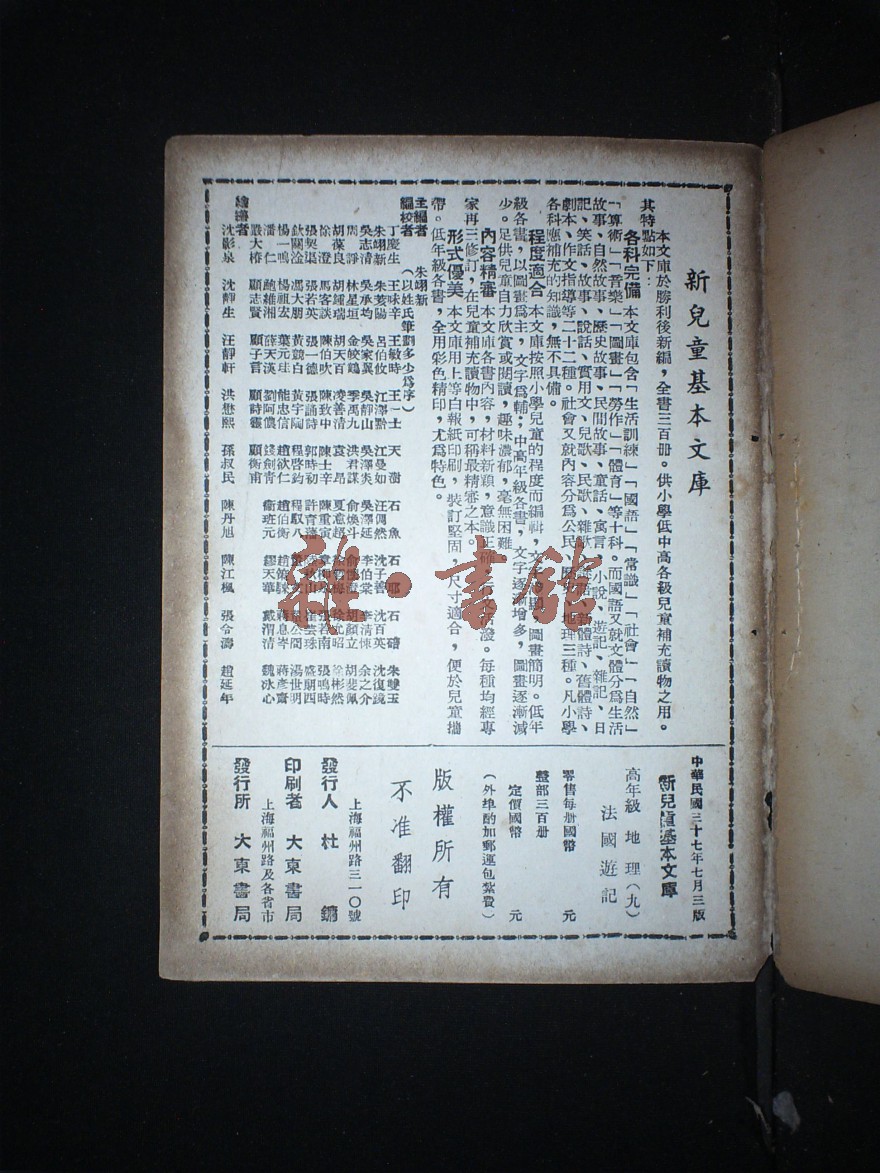 新兒童基本文庫
本文庫於勝利後新編，全書三百册。供小學低中高各級兒童補充讀物之用。
其特點如下：
各科完備 本文庫包含「生活訓練」「國語」「常識」「社會」「自然」
「算術」「音樂」「圖畫」「勞作」「體育」等十科。而國語又就文體分爲生活
故事、自然故事、歷史故事、民間故事、童話、寓言、小說、遊記、雜記、日
記、笑話、故事、說話、實用文、兒歌、民歌、雜歌、詩、舊體詩、
劇本、作文指導等二十二種。社會又就內容分爲公民、地理三種。凡小學
各科應補充的知識，無不具備。
程度適合 本文庫按照小學兒童的程度而編輯，文，圖畫簡明。低年
級各書，以圖畫爲主，文字爲輔；中高年級各書，文字逐漸增多，圖畫逐漸減
少。足供兒童自力欣賞或閱讀，趣味濃郁，毫無困難。
內容精審 本文庫各書內容，材料新穎，意識正確，活潑。每種均經專
家再三修訂，在兒童補充讀物中，可稱最精審之本。
形式優美 本文庫用上等白報紙印刷，裝訂堅固，尺寸適合，便於兒童攜
帶。低年級各書，全用彩色精印，尤爲特色。
主編者 朱翊新
編校者 （以姓氏筆劃多少爲序）
丁慶生 王味辛 王敏時 王一士 天澍 石魚 石 石碚 朱雙玉
朱翊新 朱菱陽 呂伯攸 江澤黔 江曼如 汪偶然 沈子善 沈百英 沈復鏡
吳志清 吳承均 吳家翼 吳靜山 吳澤炎 吳澤延 李伯棠 李清悚 余之介
周靜 林星垣 金皎鶴 季禹九 洪君謀 俞煥斗 胡顏立 胡斐佩
胡葆良 胡鍾瑞 胡天百 凌善清 袁昂 夏意超 徐允昭 徐彬然
徐澄 馬客談 陳伯吹 陳致中 陳士辛 陳重寅 張若南 張鳴時
張契渠 張若英 張一德 張誦詩 郭時初 許青藩 崔芸珠 盛朗西
欽關淦 馮大朋 黃競白 黃宇陶 程啓鈞 程馭八 湯世明
楊一鳴 楊祖宏 葉元珪 熊忠信 趙欲仁 趙伯衡 蔣息岑 蔣彥齋
潘仁 鮑維湘 薛天漢 劉阿儂 錢劍青 衞班元 繆天華 戴渭清 魏冰心
嚴大椿 顧志賢 顧子言 顧詩靈 顧衡甫
繪畫者
沈影泉 沈師生 汪靜軒 洪懋熙 孫叔民 陳丹旭 陳江楓 張令濤 趙延年
中華民國三十七年七月三版
新兒童基本文庫
高年級 地理（九）
法國遊記
零售每册國幣 元
整部三百册
定價國幣 元
（外埠酌加郵運包紮費）
版權所有
不准翻印
上海福州路三一〇號
發行人 杜鏞
印刷者 大東書局
上海福州路及各省市
發行所 大東書局
雜·書館